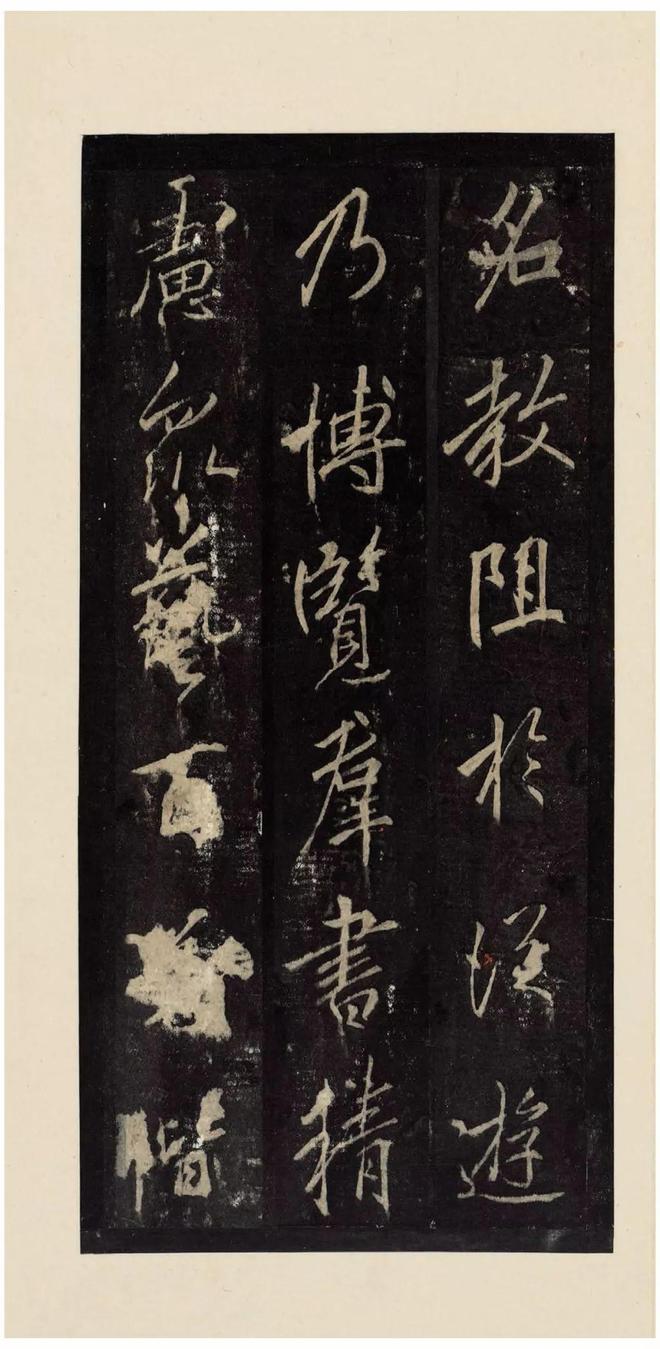 名教阻於從遊
乃博覽羣書精
慮衆藝百